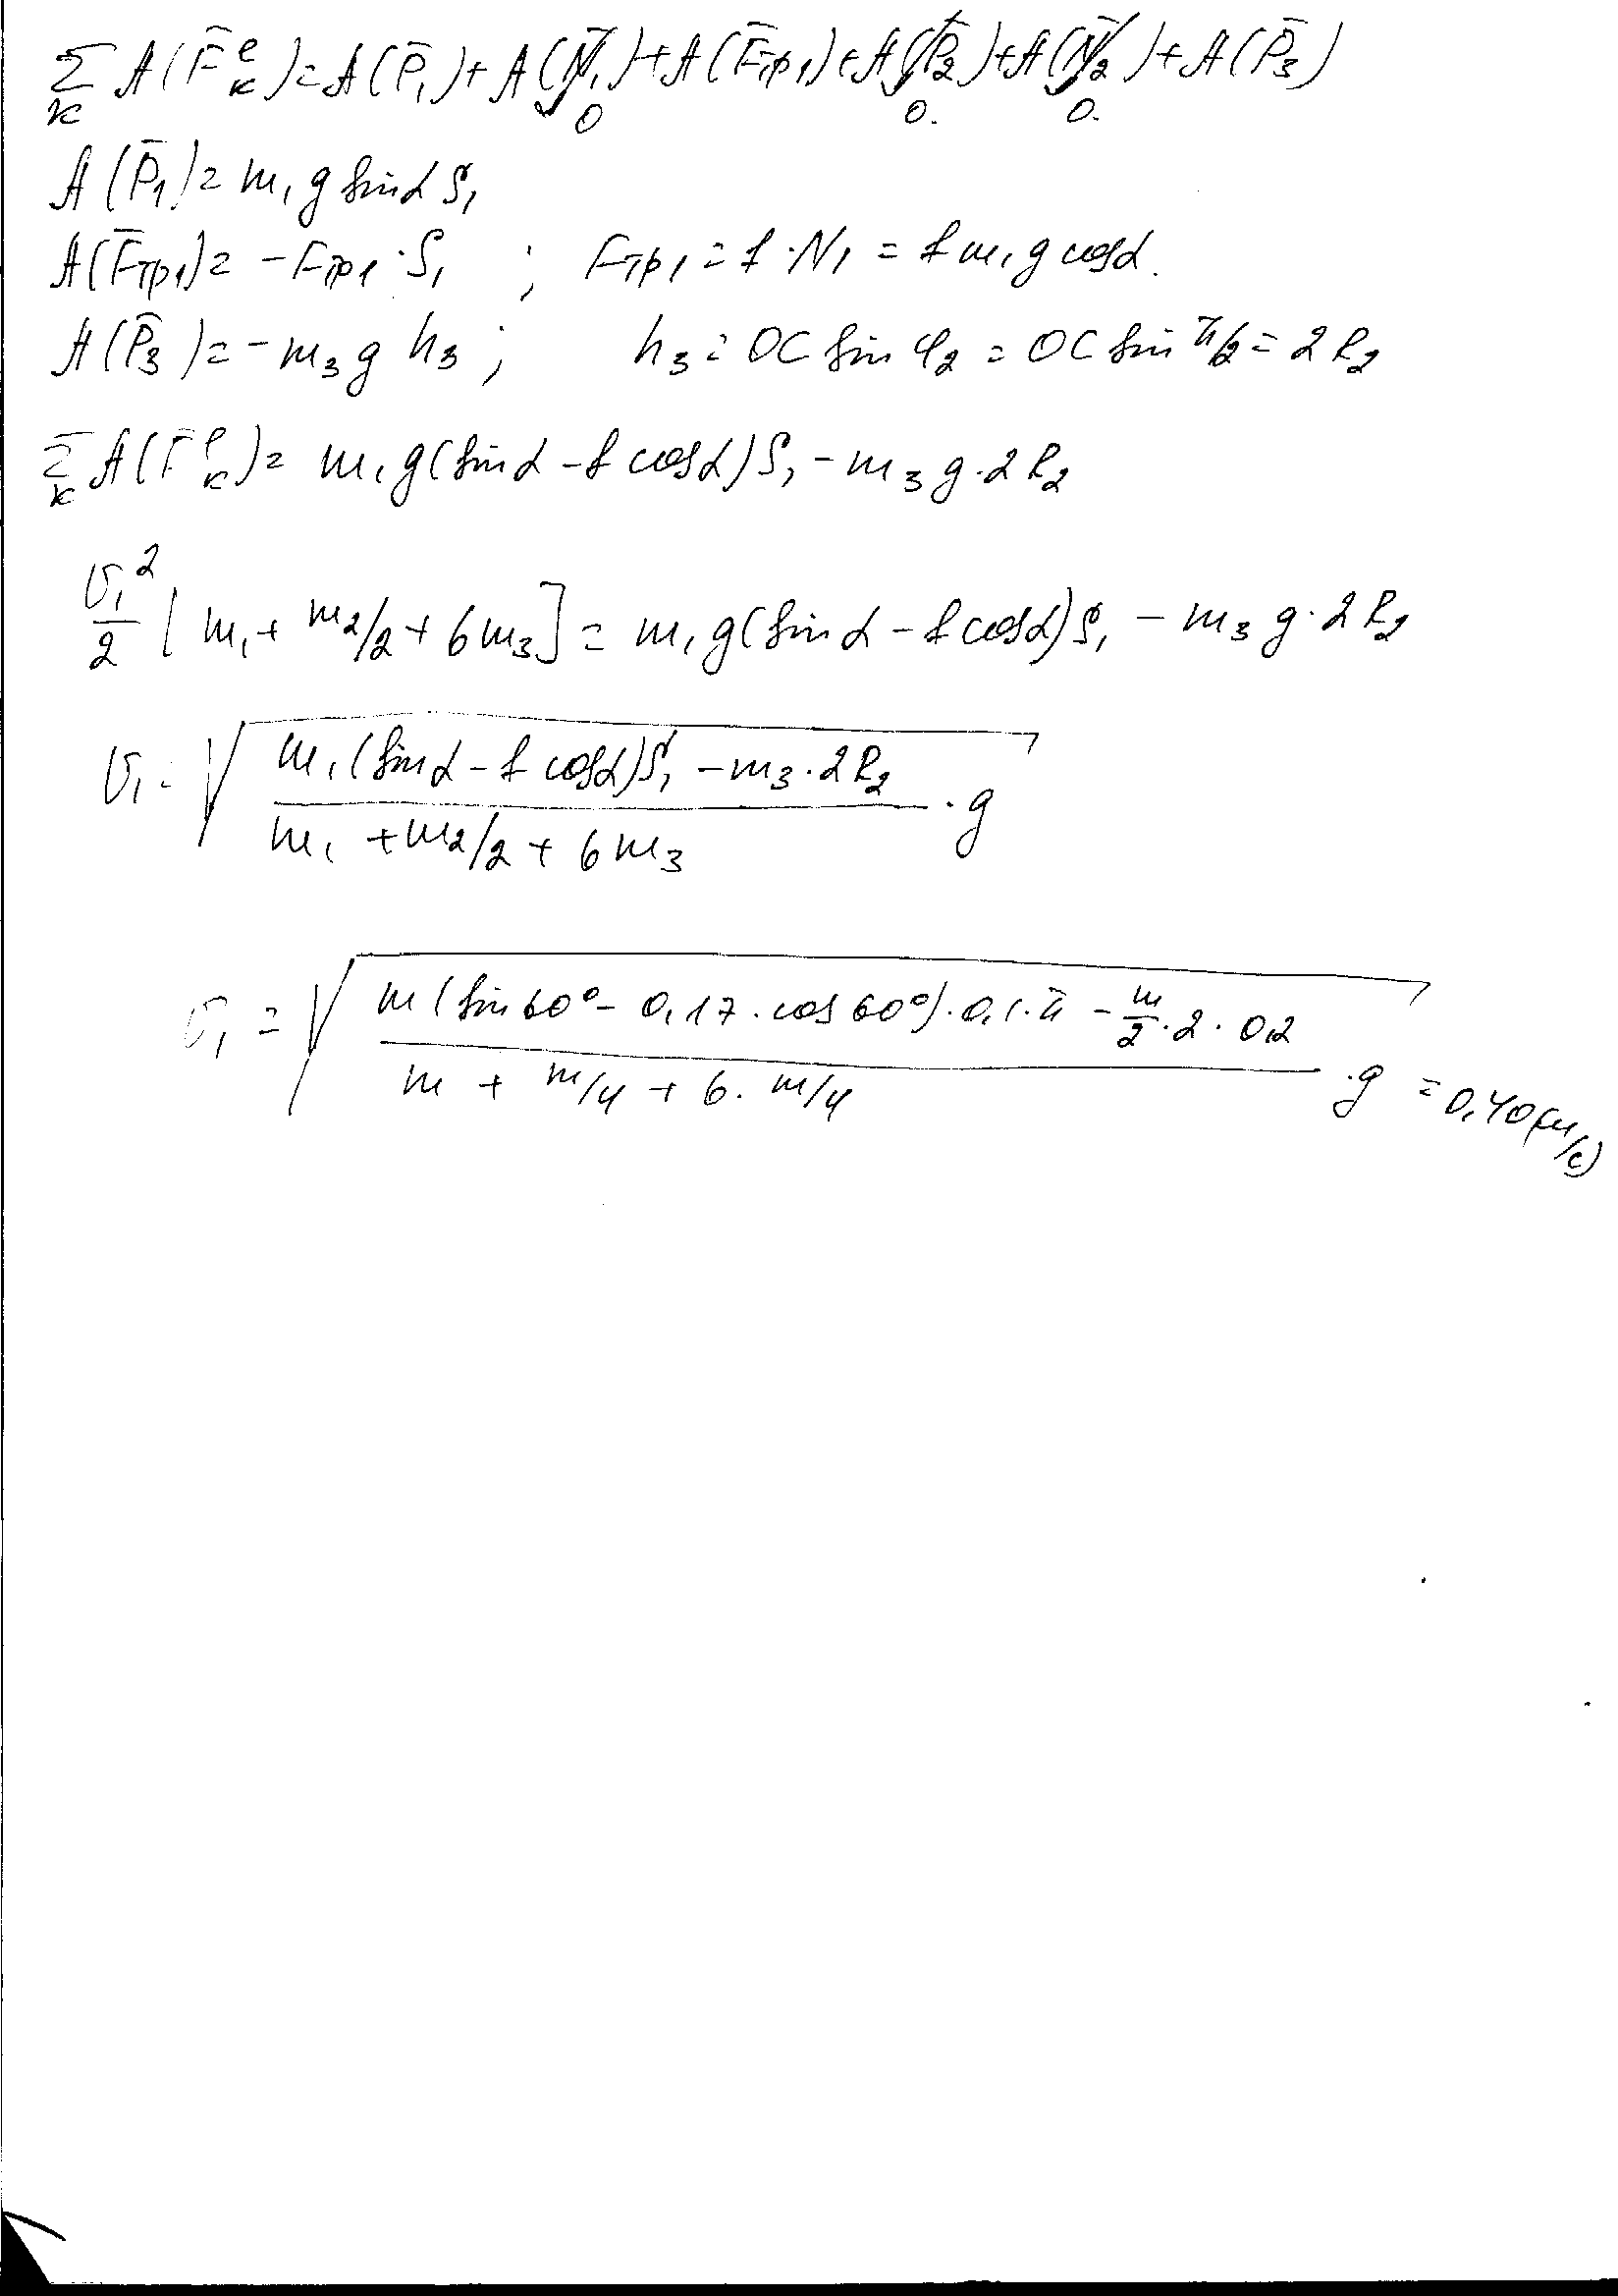 ∑ₖ A(F̄ₖᵉ) = A(P̄₁) + A(N̄₁) + A(F̄тр1) + A(P̄₂) + A(N̄₂) + A(P̄₃)
0 0. 0.
A(P̄₁) = m₁ g sinα S₁
A(F̄тр1) = −Fтр1 · S₁ ; Fтр1 = f · N₁ = f m₁ g cosα.
A(P̄₃) = −m₃ g h₃ ; h₃ = OC sin φ₂ = OC sin π/2 = 2R₂
∑ₖ A(F̄ₖᵉ) = m₁ g (sinα − f cosα) S₁ − m₃ g · 2R₂
υ₁²/2 [m₁ + m₂/2 + 6m₃] = m₁ g (sinα − f cosα) S₁ − m₃ g · 2R₂
υ₁ = √((m₁ (sinα − f cosα) S₁ − m₃ · 2R₂)/(m₁ + m₂/2 + 6m₃) · g)
υ₁ = √((m (sin 60° − 0,17 · cos 60°) · 0,1 · π − m/2 · 2 · 0,2)/(m + m/4 + 6 · m/4) · g) = 0,40 (м/с)